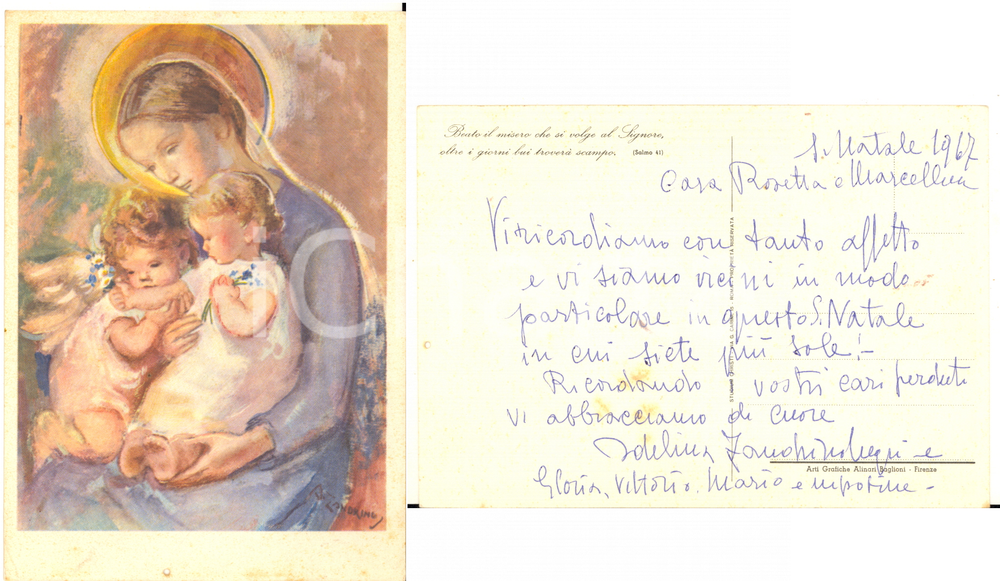 A. ZANDRINO
Beato il misero che si volge al Signore,
oltre i giorni bui troverà scampo. (Salmo 41)
S. Natale 1967
Cara Rosetta e Marcellina
Vi ricordiamo con tanto affetto
e vi siamo vicini in modo
particolare in questo S. Natale
in cui siete più sole!-
Ricordando vostri cari perduti
vi abbracciamo di cuore
Adelina Zandrino e
Gloria, Vittorio, Mario e nipotine -
Arti Grafiche Alinari Baglioni - Firenze